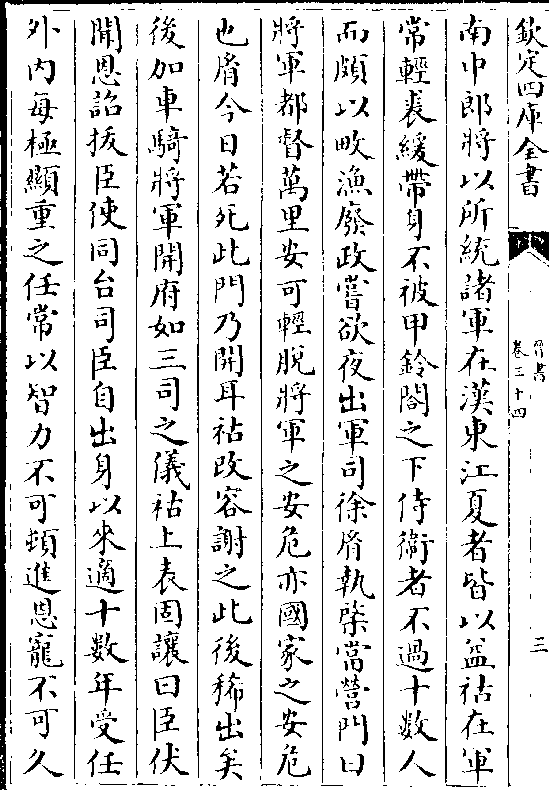 欽定四庫全書
晉書
卷三十四
三
南中郎將以所統諸軍在漢東江夏者皆以益祜在軍
常輕裘緩帶身不被甲鈴閤之下侍衛者不過十數人
而頗以畋漁廢政嘗欲夜出軍司徐胤執棨當營門曰
將軍都督萬里安可輕脫將軍之安危亦國家之安危
也胤今日若死此門乃開耳祜改容謝之此後稀出矣
後加車騎將軍開府如三司之儀祜上表固讓曰臣伏
聞恩詔拔臣使同台司臣自出身以來適十數年受任
外内每極顯重之任常以智力不可頓進恩寵不可久